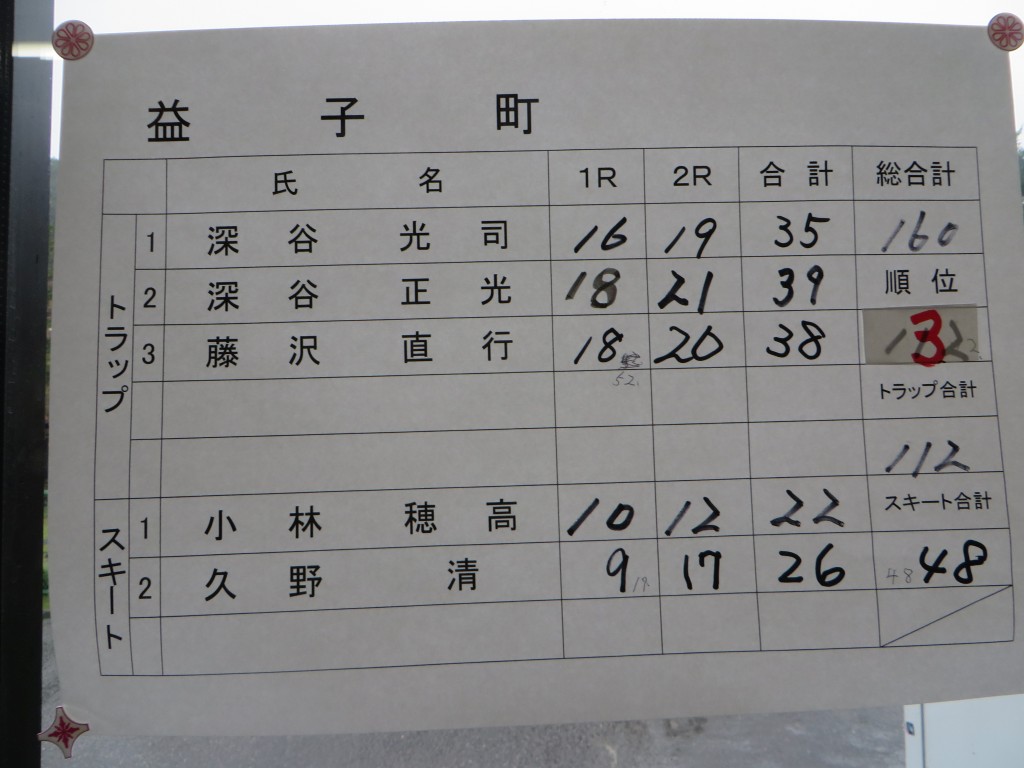 益子町
氏名 1R 2R 合計 総合計
トラップ
1 深谷光司 16 19 35 160
2 深谷正光 18 21 39 順位
3 藤沢直行 18 20 38 3
52.
トラップ合計
112
スキート
1 小林穂高 10 12 22 スキート合計
2 久野清 9 19. 17 26 48 48